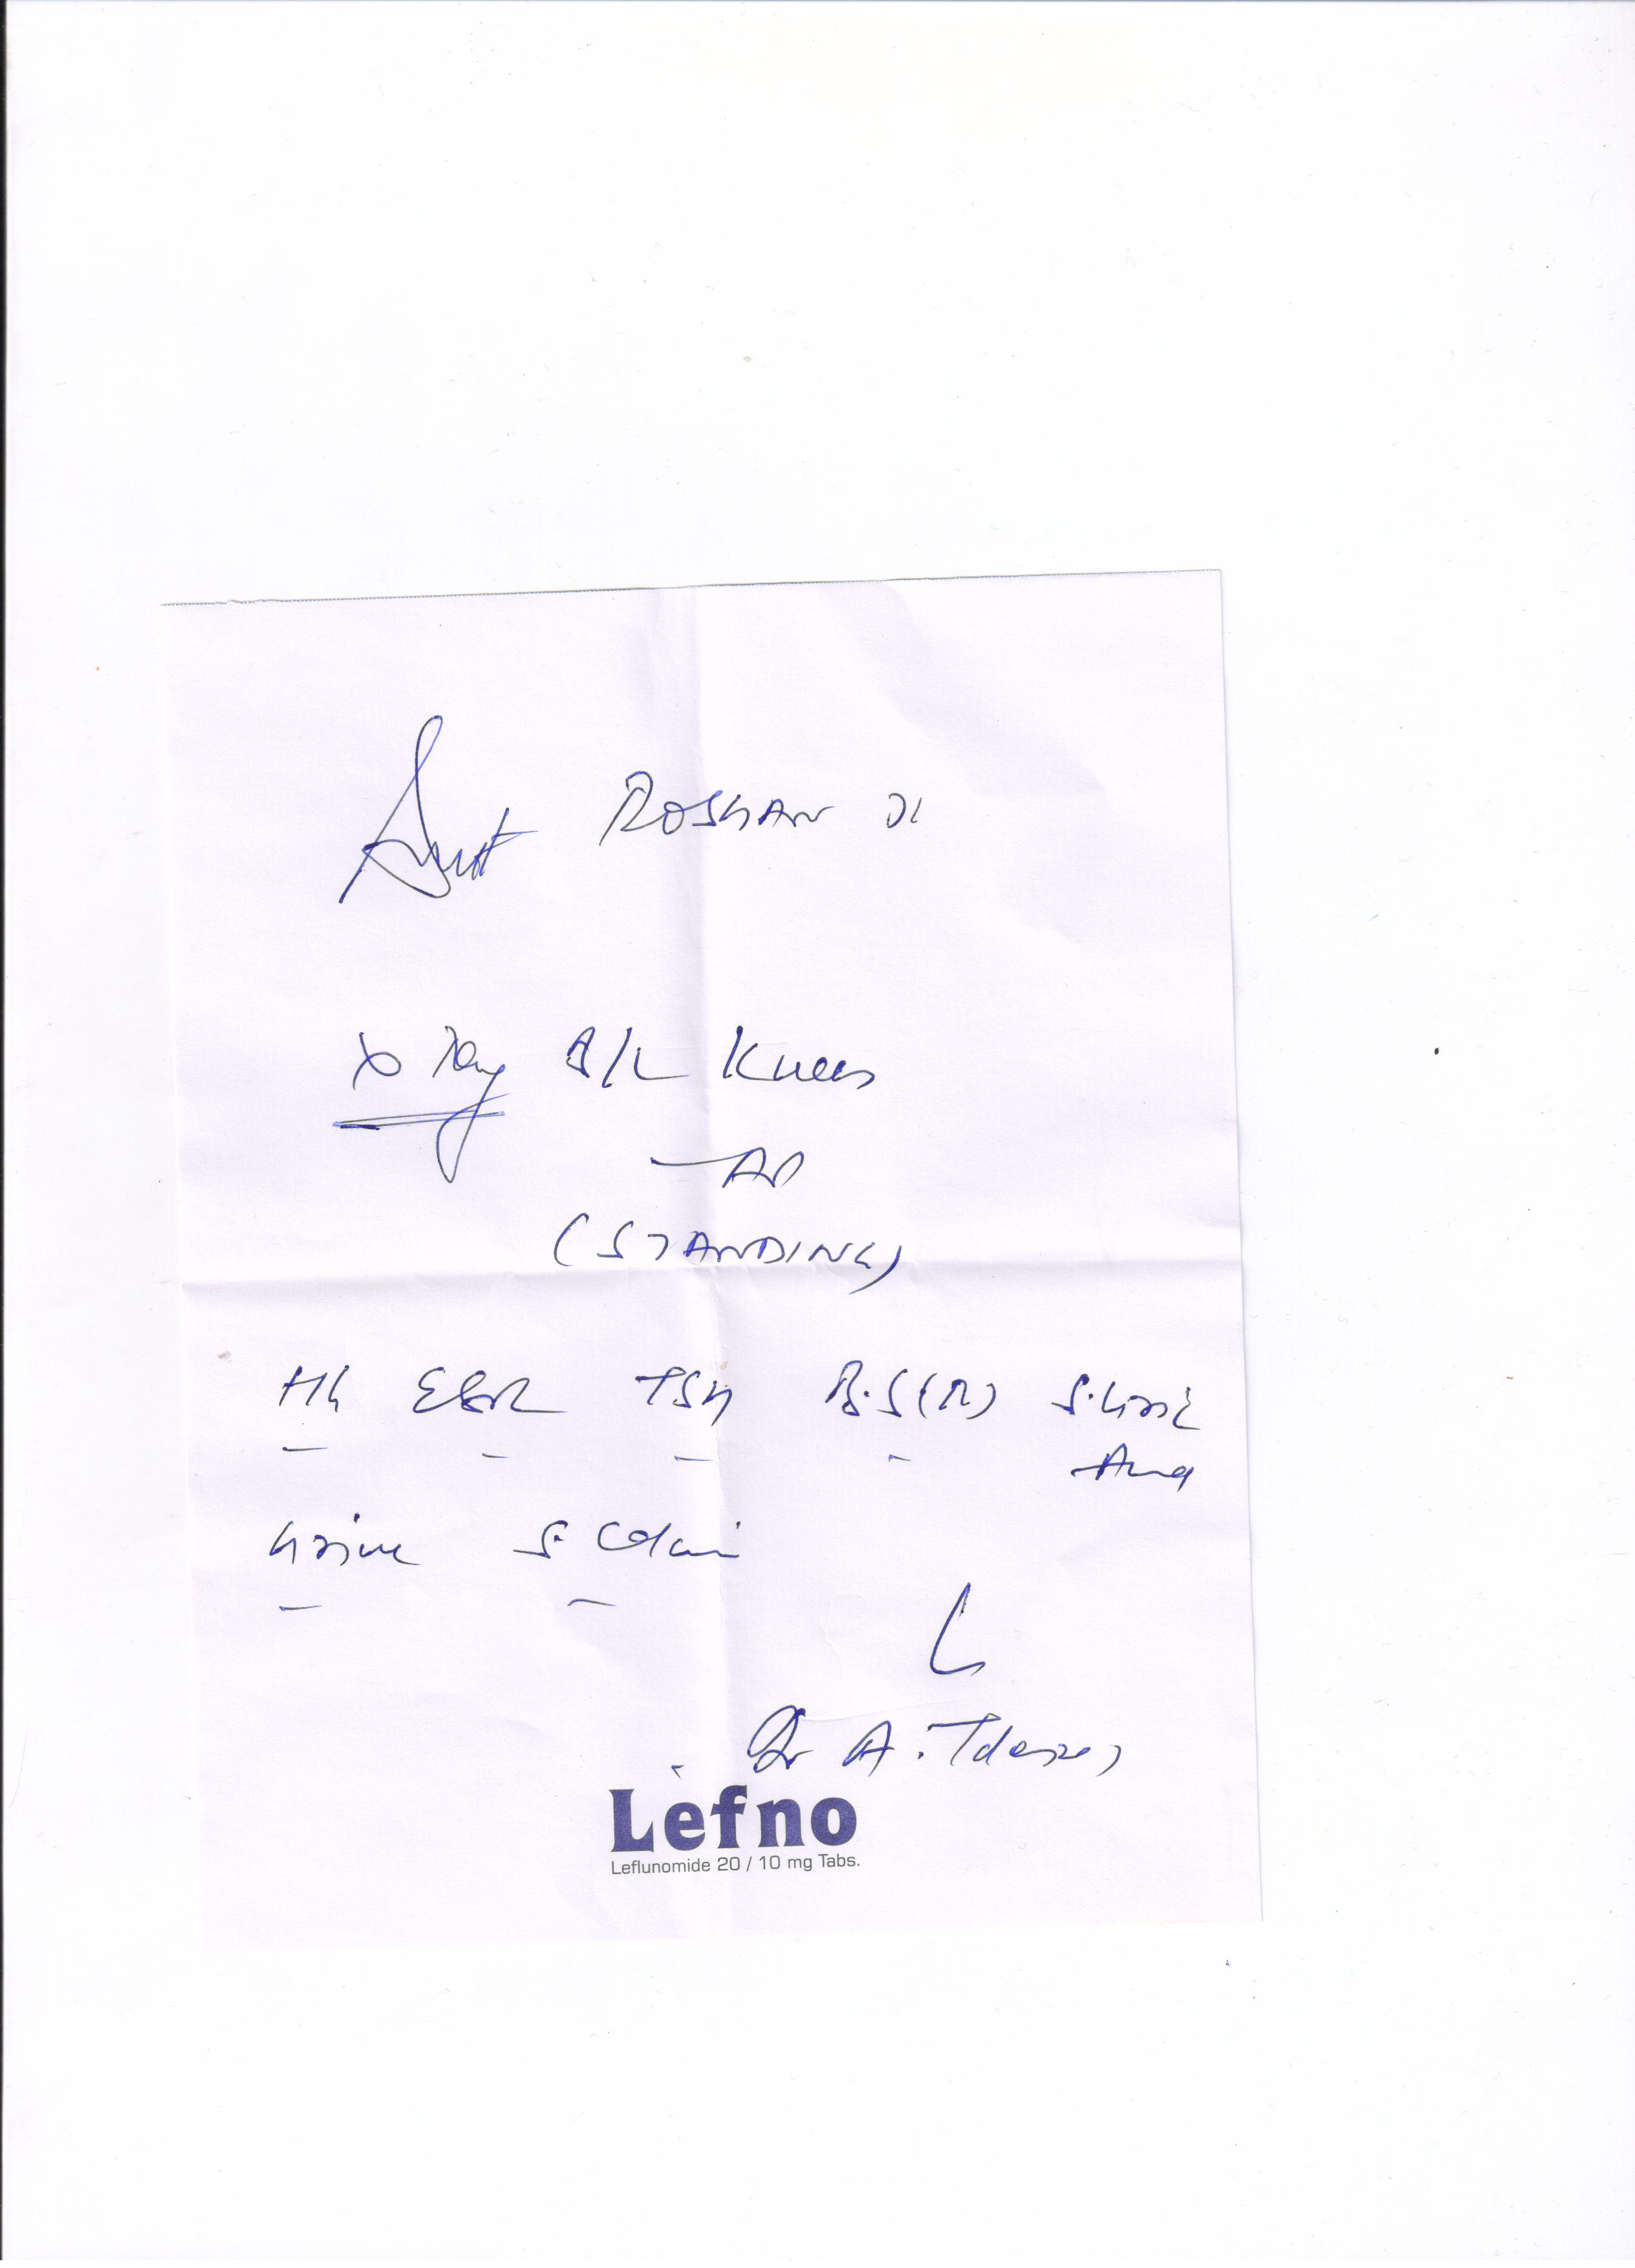 Smt ROSHAN
X Ray B/L Knees
AP
(STANDING)
Hb ESR TSH B.S(R) S.Uric
Acid
Urine S. Calci
Dr A.
Lefno
Leflunomide 20 / 10 mg Tabs.